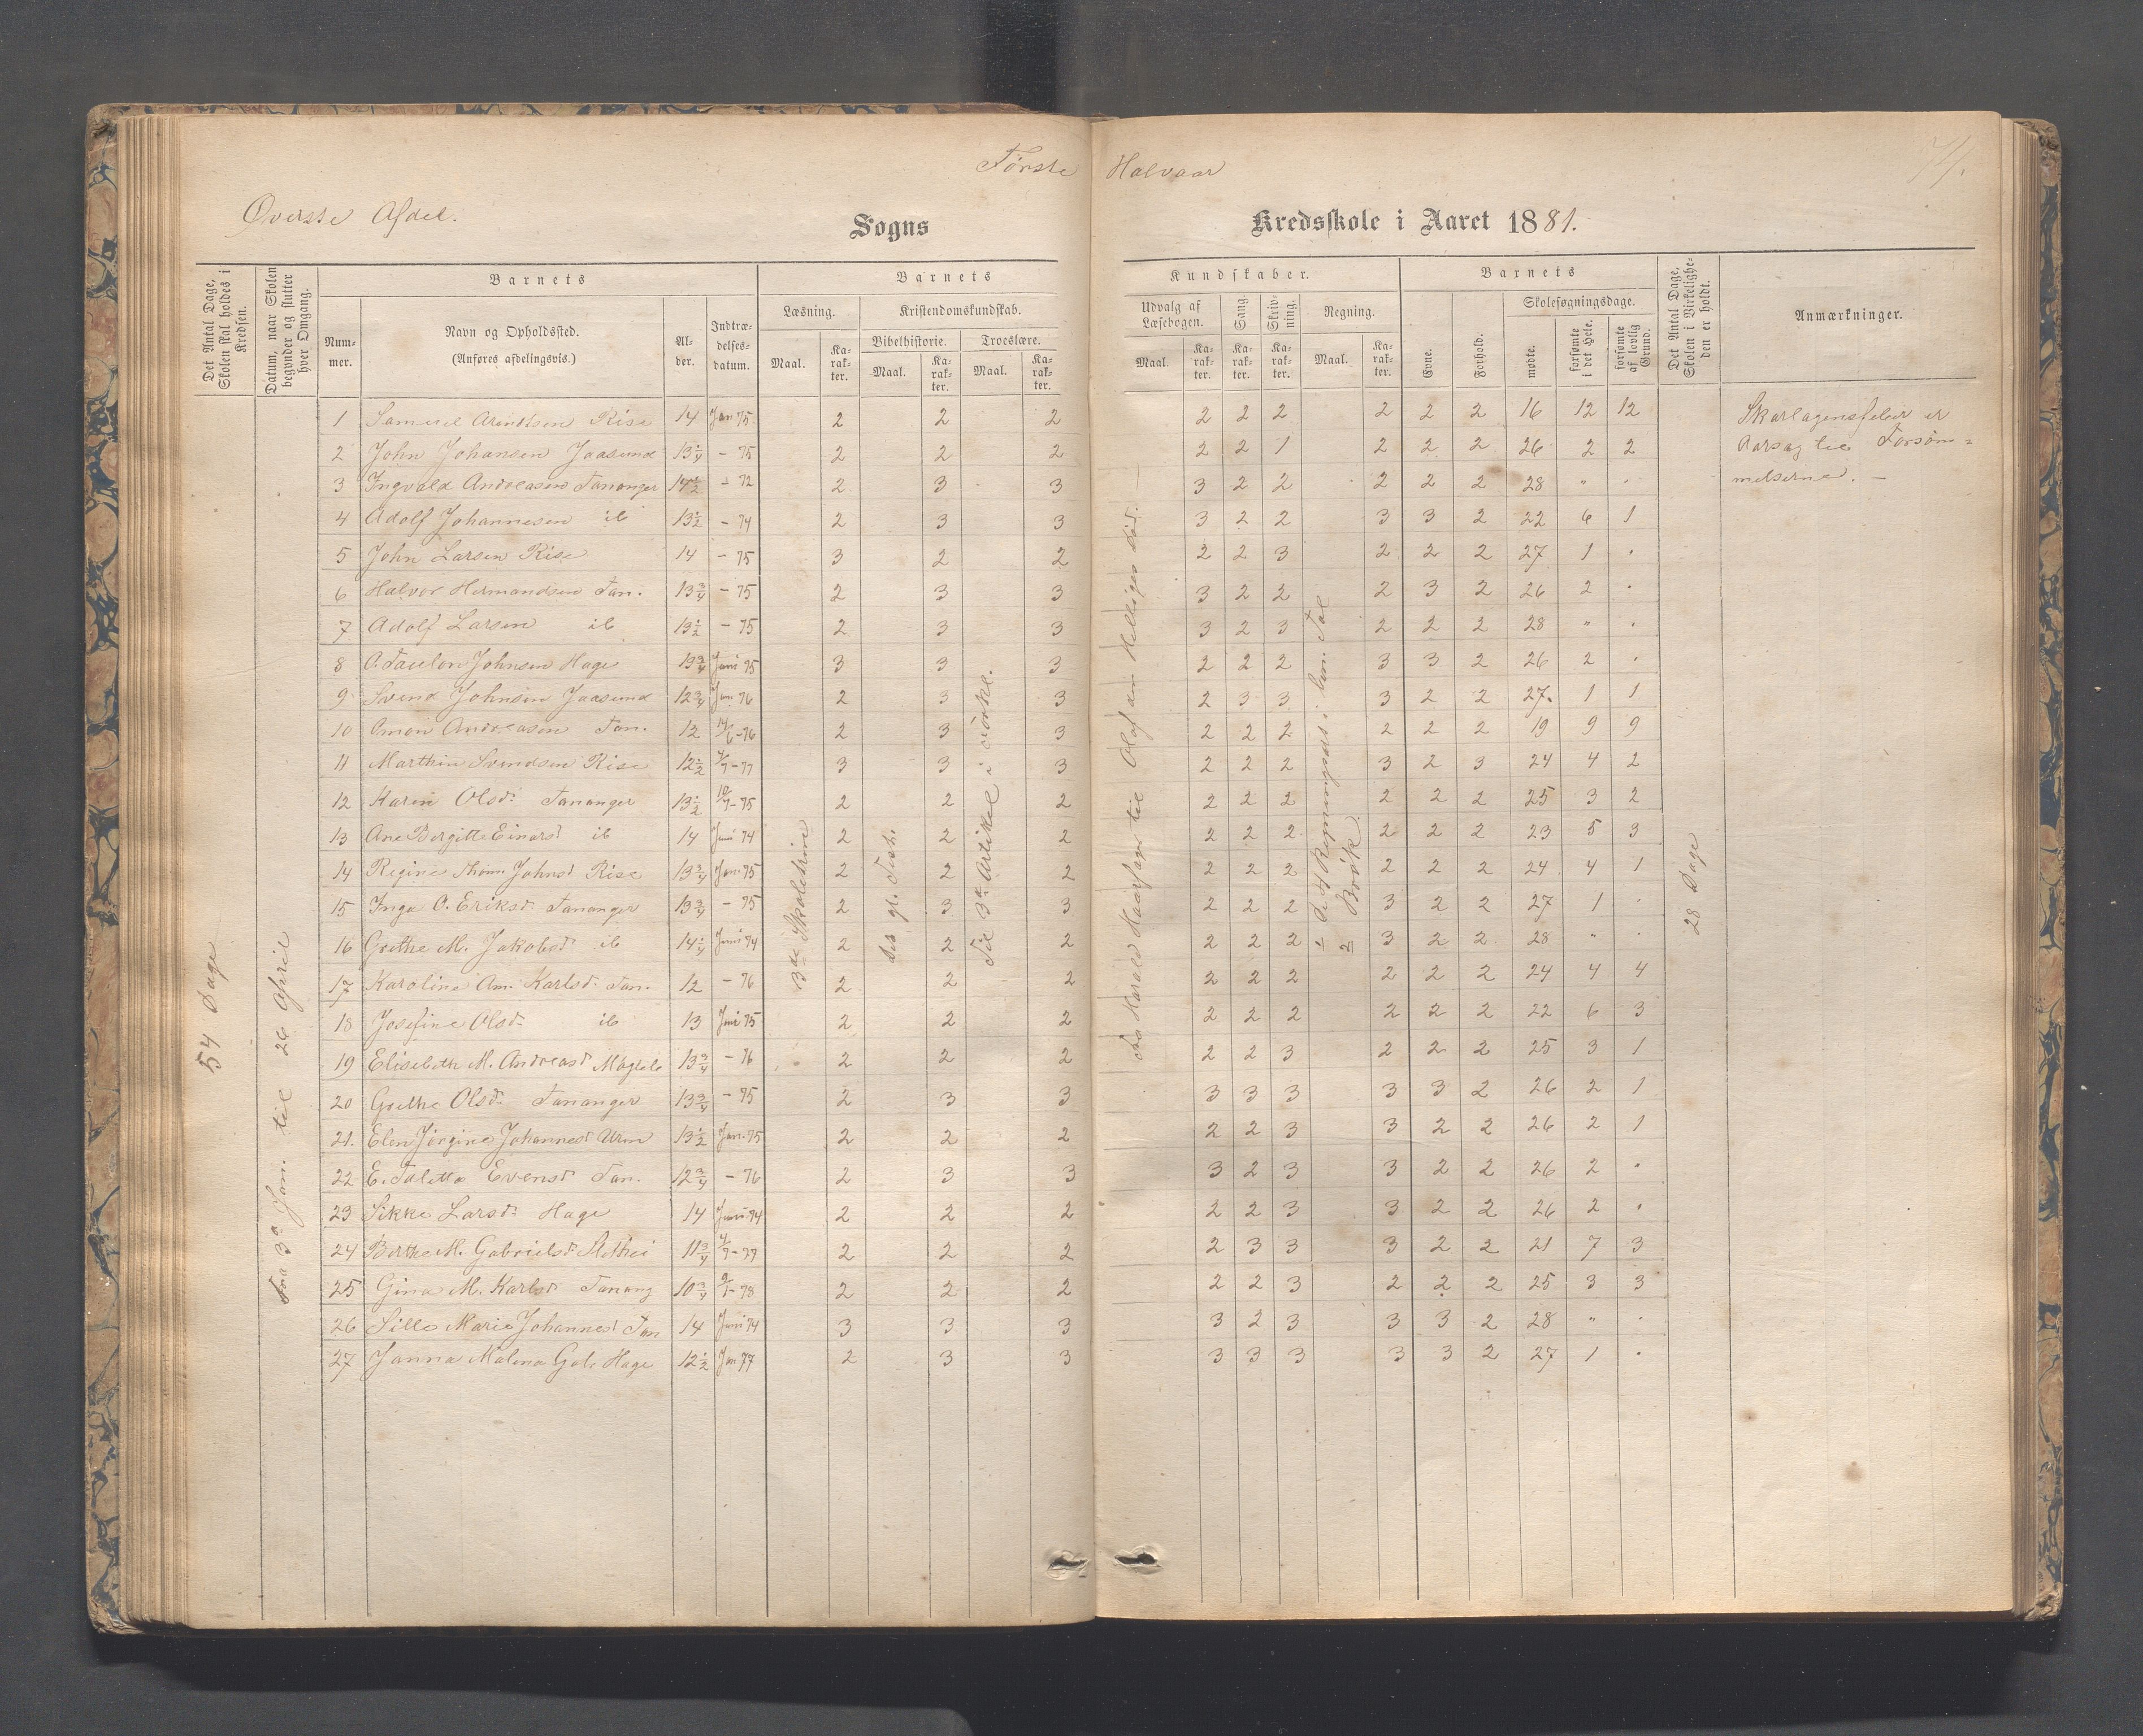 Første Halvaar
Øverste Afdel.
Sogns Kredsskole i Aaret 1881.
Det Antal Dage, Skolen skal holdes i Kredsen.
Datum, naar Skolen begynder og slutter hver Omgang.
Barnets
Num-mer.
Navn og Opholdssted.
(Anføres afdelingsvis.)
Al-der.
Indtræ-delses-datum.
Barnets
Læsning.
Kristendomskundskab.
Bibelhistorie.
Troeslære.
Maal.
Ka-rak-ter.
Maal.
Ka-rak-ter.
Maal.
Ka-rak-ter.
Kundskaber.
Udvalg af Læsebogen.
Sang.
Skriv-ning.
Regning.
Maal.
Ka-rak-ter.
Ka-rak-ter.
Ka-rak-ter.
Maal.
Ka-rak-ter.
Barnets
Evne.
Forhold.
Skolesøgningsdage.
mødte.
forsømte i det Hele.
forsømte af lovlig Grund.
Det Antal Dage, Skolen i Virkelighe-den er holdt.
Anmærkninger.
54 Dage
Fra 3de Jan. til 26 April
3de Skoletrin
Til 3de Artikel i
fra Harald Haarfager til Olaf den Helliges Død.
Brøk
28 Dage
Skarlagensfeber er
Aarsag til Forsøm-
melserne. —
1 Samuel Arentsen Rise 14 Jan 75 2 2 2 2 2 2 2 2 2 16 12 12
2 John Johansen Jaasund 13¼ – 75 2 2 2 2 2 1 2 2 2 26 2 2
3 Ingvald Andreasen Tananger 14½ – 72 2 3 3 3 2 2 2 2 2 28 " .
4 Adolf Johannesen ib 13½ – 74 2 3 3 3 2 2 3 3 2 22 6 1
5 John Larsen Rise 14 – 75 3 2 2 2 2 3 2 2 2 27 1 .
6 Halvor Hermandsen Tan. 13¾ – 75 2 3 3 3 2 2 2 3 2 26 2 .
7 Adolf Larsen ib 13½ – 75 2 3 3 3 2 3 2 2 2 28 " .
8 O. Taulon Johnsen Hage 13¾ Juni 75 3 3 3 2 2 2 3 3 2 26 2 .
9 Svend Johnsen Jaasund 12¾ Jan. 76 2 3 3 2 3 3 3 2 2 27. 1 1
10 Omon Andreasen Tan. 12 14/6–76 2 3 3 2 2 2 2 2 2 19 9 9
11 Marthin Svendsen Rise 12½ 4/7–77 3 3 3 2 2 2 3 2 3 24 4 2
12 Karen Olsd. Tananger 13½ 10/7–75 2 2 2 2 2 2 2 2 2 25 3 2
13 Ane Bergitte Einarsd ib 14 Juni 74 2 2 2 2 2 2 2 2 2 23 5 3
14 Regine Thom. Johnsd Rise 13¾ Jan. 75 2 2 2 2 2 2 2 2 2 24 4 1
15 Inga O. Eriksd. Tananger 13¾ – 75 2 3 3 2 2 2 3 2 2 27 1 .
16 Grethe M. Jakobsd ib 14¼ Juni 74 2 2 2 2 2 2 3 2 2 28 " .
17 Karoline Am. Karlsd. Tan. 12 – 76 2 2 2 2 2 2 2 2 2 24 4 4
18 Josefine Olsd. ib 13 Juni 75 2 2 2 2 2 2 2 2 2 22 6 3
19 Elisebeth M. Andreasd Møgleb 13¾ – 76 2 2 2 2 2 3 2 2 2 25 3 1
20 Grethe Olsd. Tananger 13¾ – 75 2 3 3 3 3 3 3 3 2 26 2 1
21. Elen Jørgine Johannesd Urin 13½ Jan. 75 2 2 2 2 2 3 3 2 2 26 2 1
22 E. Taletta Evensd Tan. 12¾ – 76 2 3 3 3 2 3 3 2 2 26 2 .
23 Sikke Larsd. Hage 14 Juni 74 2 2 2 2 2 3 3 2 2 26 2 .
24 Berthe M. Gabrielsd. 11¾ 4/7–77 2 2 2 2 3 3 3 2 2 21 7 3
25 Gina M. Karlsd Tanang 10¾ 9/1–78 2 2 2 2 2 3 2 2 2 25 3 3
26 Sille Marie Johannesd Tan 14 Juni 74 3 3 3 3 2 3 3 3 2 28 " .
27 Janna Malena Gab. Hage 12½ Jan 77 2 3 3 3 3 3 3 3 2 27 1 .